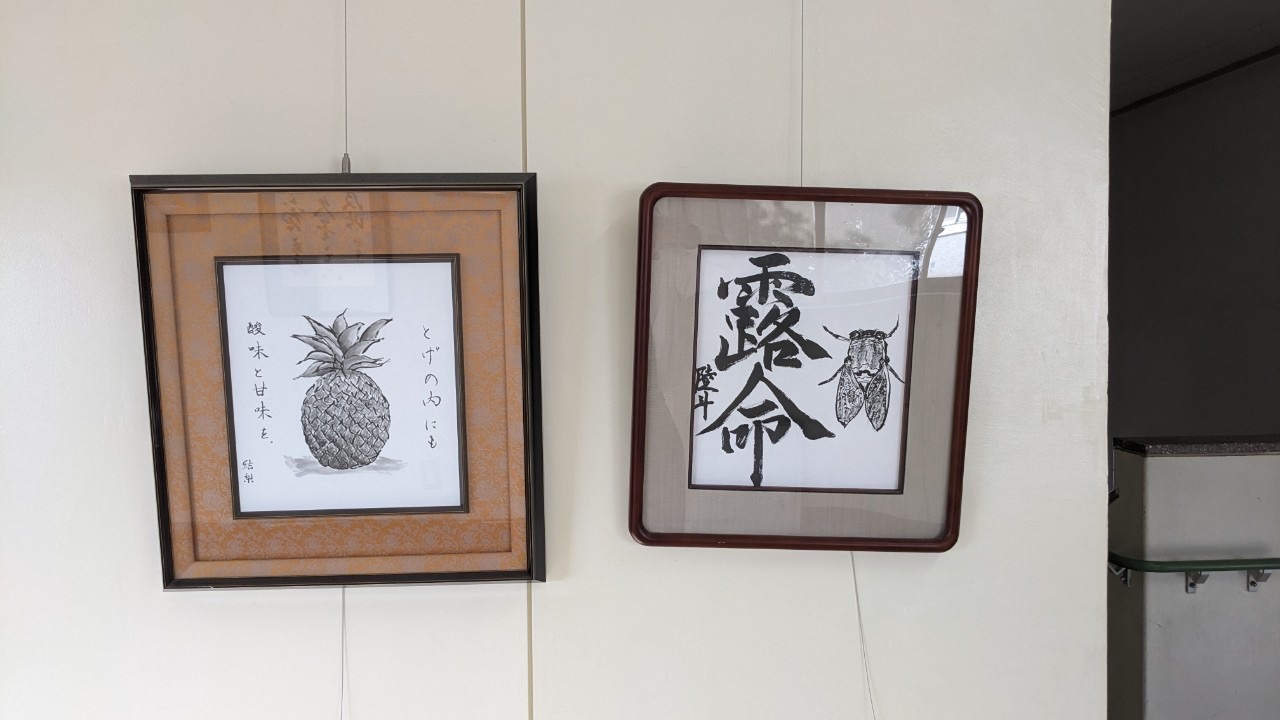 とげの内にも
酸味と甘味を、
結梨
露命
陸斗